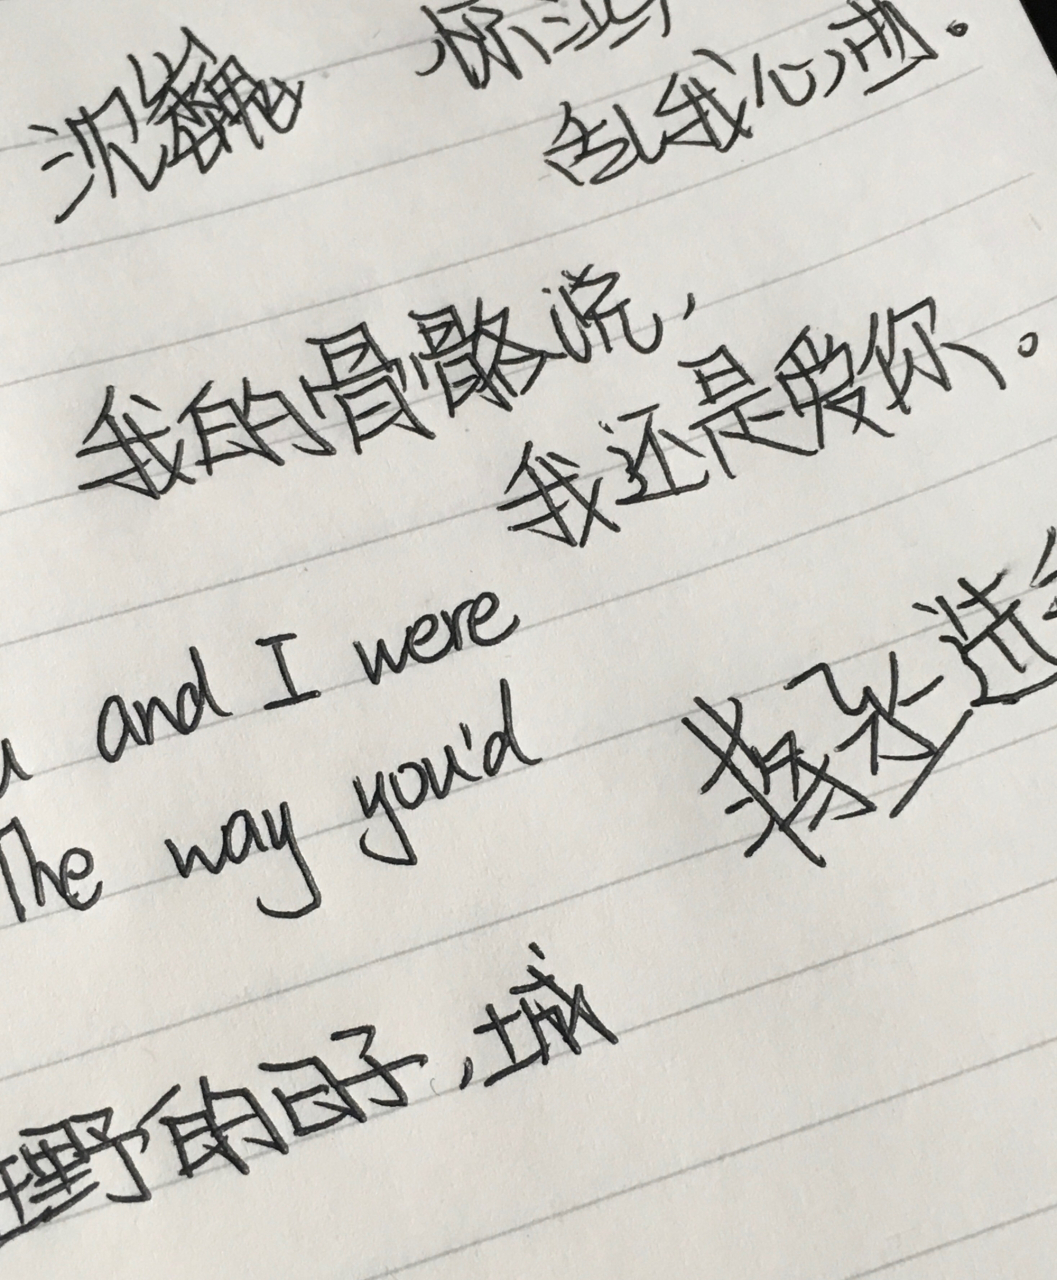 乱我心曲。
我的骨骼说,
我还是爱你。
and I were
The way you'd
野的日子,城